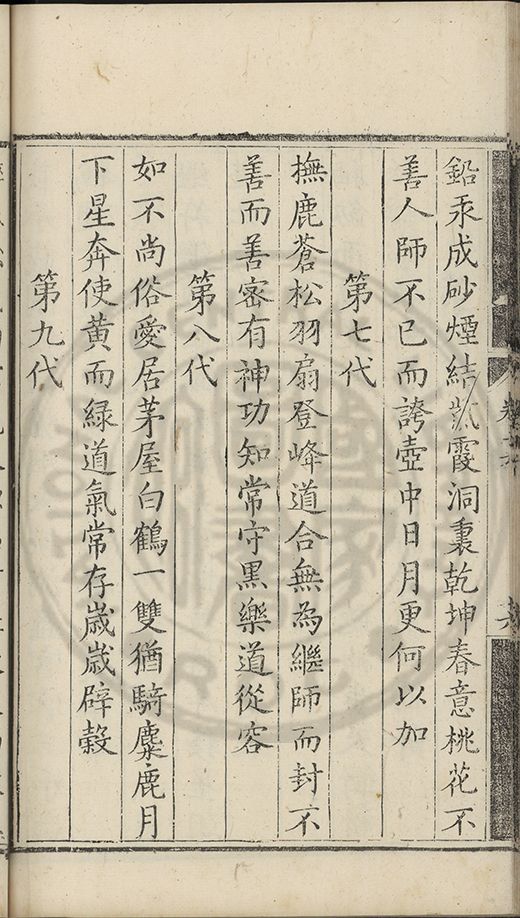 鉛汞成砂煙結紫霞洞裏乾坤春意桃花不
善人師不已而誇壺中日月更何以加
第七代
撫鹿蒼松羽扇登峰道合無為繼師而封不
善而善密有神功知常守黑樂道從容
第八代
如不尚俗愛居茅屋白鶴一雙猶騎麋鹿月
下星奔使黄而緑道氣常存歲歲辟穀
第九代